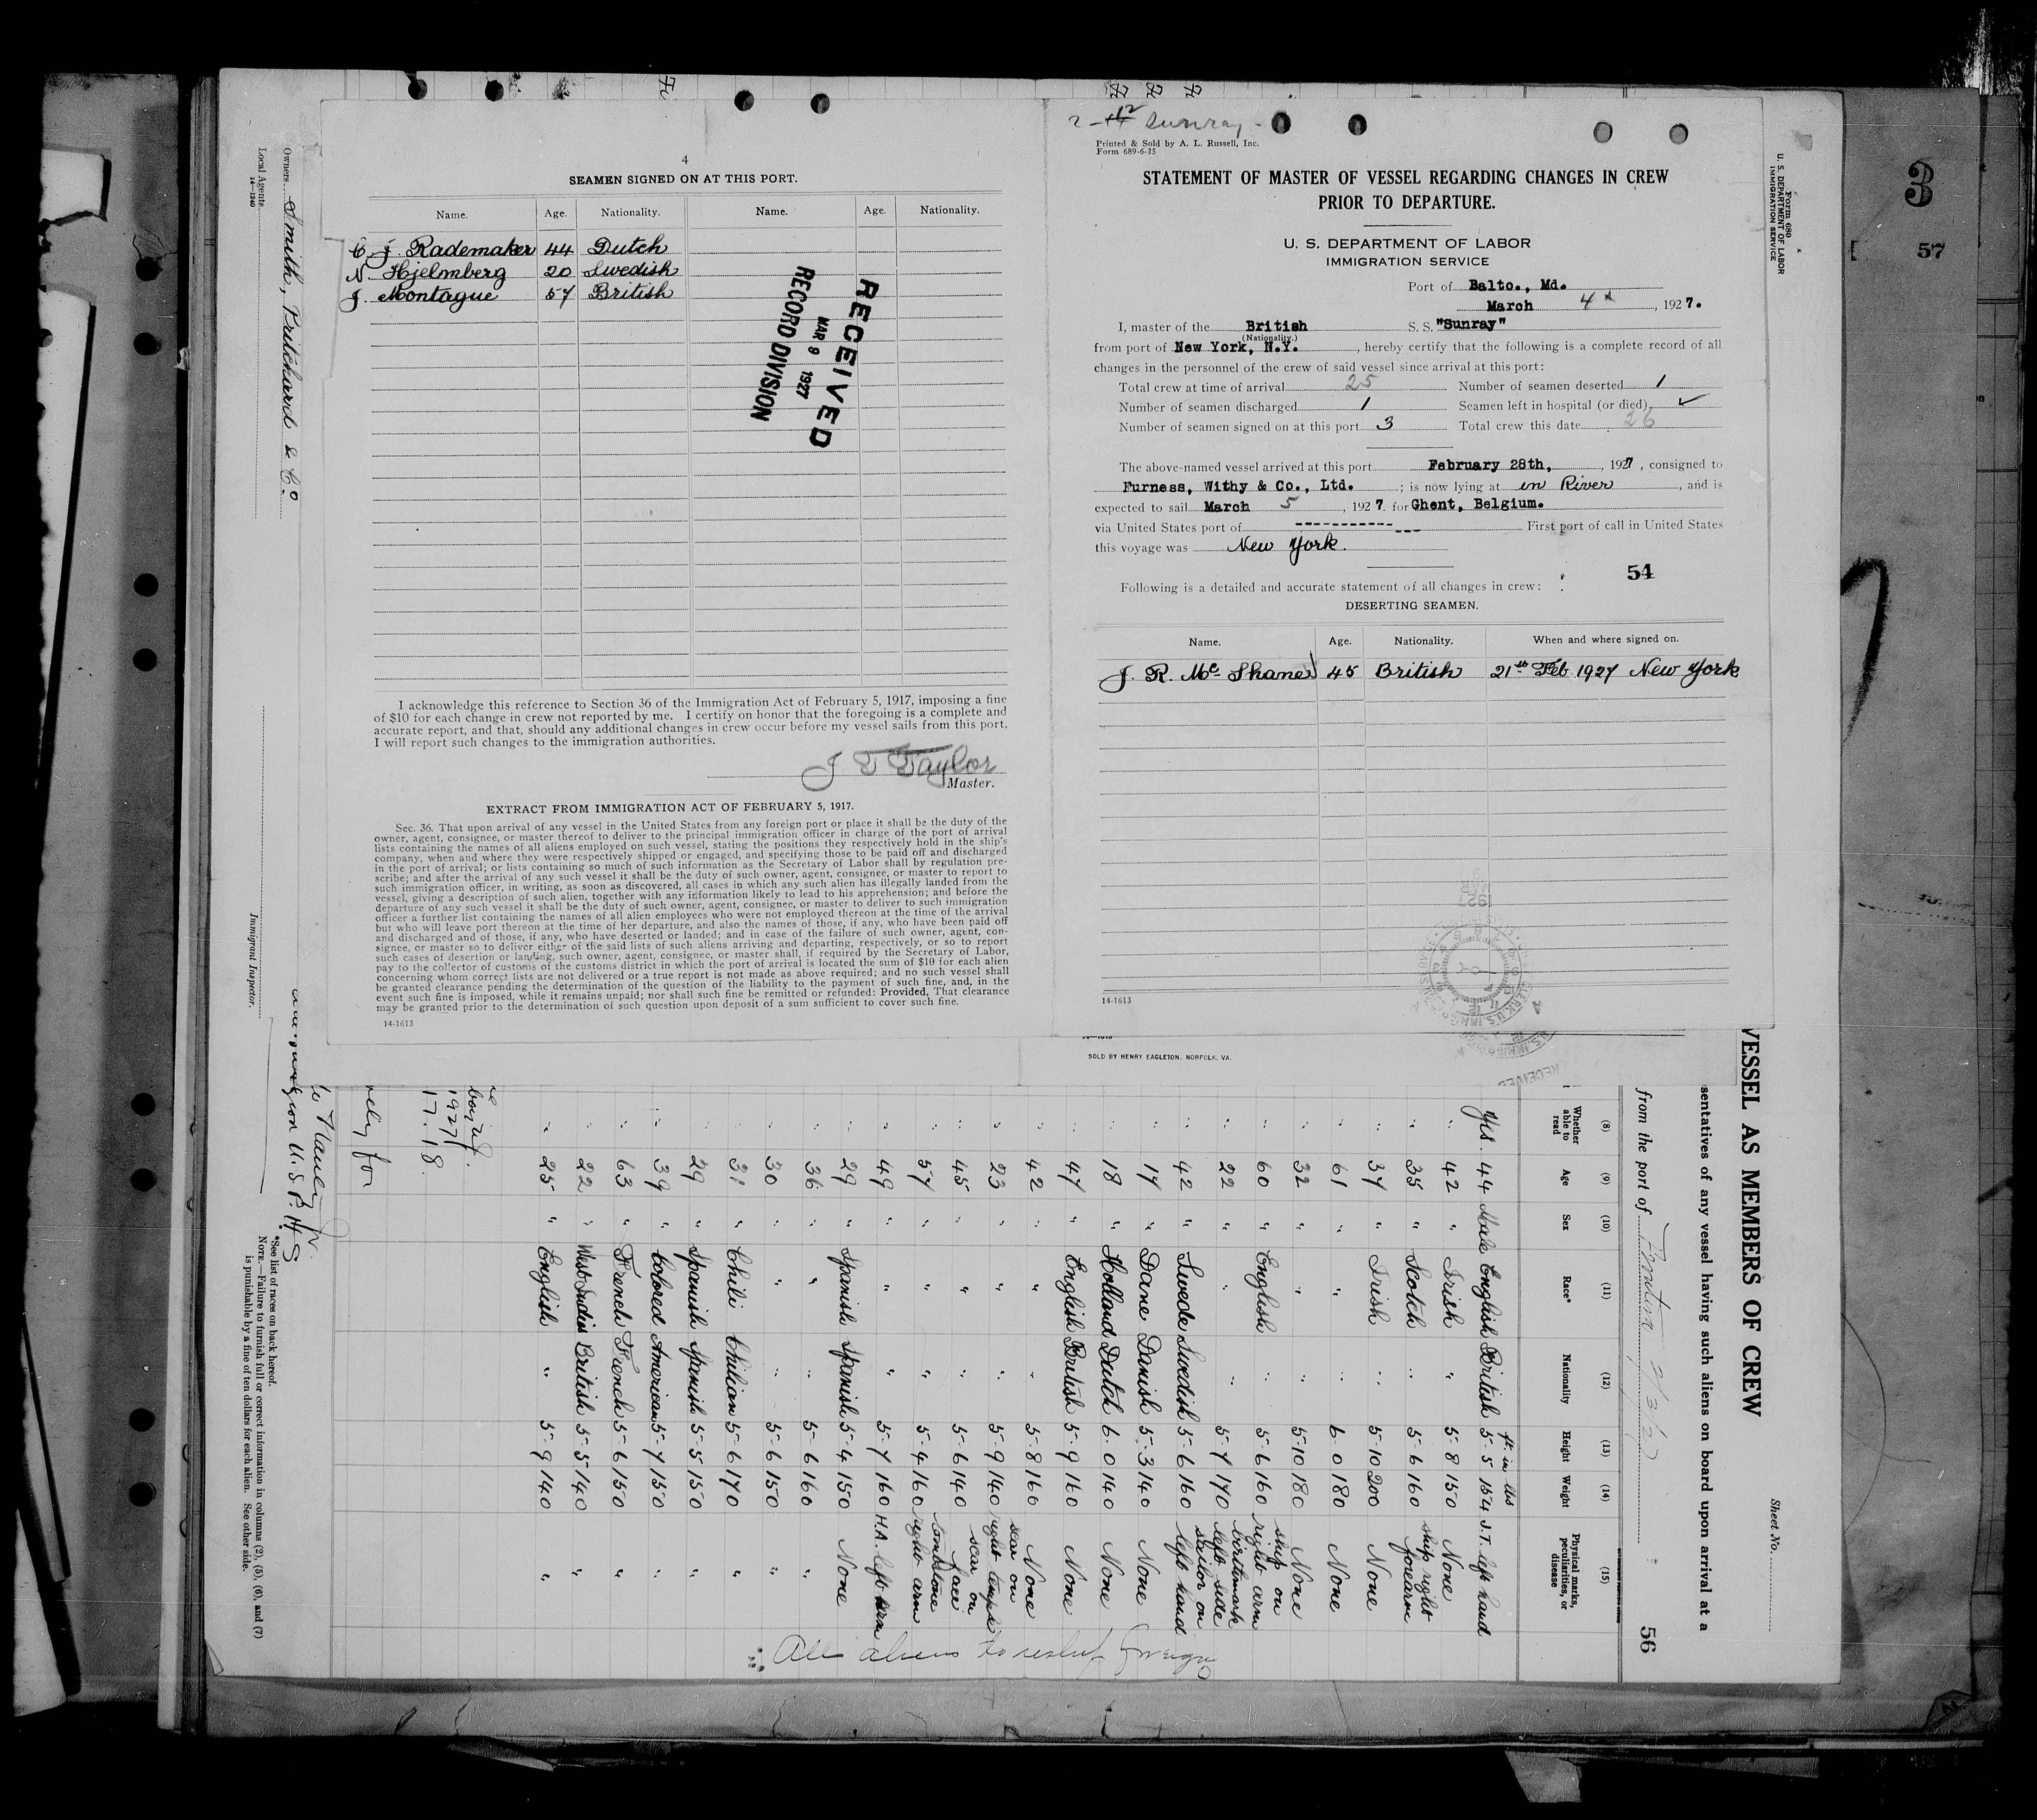 4
SEAMEN SIGNED ON AT THIS PORT.
Name. Age. Nationality. Name. Age. Nationality.
C. J. Rademaker 44 Dutch
N. Hjelmberg 20 Swedish
J. Montague 57 British
RECEIVED
MAR 9 1927
RECORD DIVISION
I acknowledge this reference to Section 36 of the Immigration Act of February 5, 1917, imposing a fine
of $10 for each change in crew not reported by me. I certify on honor that the foregoing is a complete and
accurate report, and that, should any additional changes in crew occur before my vessel sails from this port,
I will report such changes to the immigration authorities.
J T Taylor
Master.
EXTRACT FROM IMMIGRATION ACT OF FEBRUARY 5, 1917.
Sec. 36. That upon arrival of any vessel in the United States from any foreign port or place it shall be the duty of the
owner, agent, consignee, or master thereof to deliver to the principal immigration officer in charge of the port of arrival
lists containing the names of all aliens employed on such vessel, stating the positions they respectively hold in the ship's
company, when and where they were respectively shipped or engaged, and specifying those to be paid off and discharged
in the port of arrival; or lists containing so much of such information as the Secretary of Labor shall by regulation pre-
scribe; and after the arrival of any such vessel it shall be the duty of such owner, agent, consignee, or master to report to
such immigration officer, in writing, as soon as discovered, all cases in which any such alien has illegally landed from the
vessel, giving a description of such alien, together with any information likely to lead to his apprehension; and before the
departure of any such vessel it shall be the duty of such owner, agent, consignee, or master to deliver to such immigration
officer a further list containing the names of all alien employees who were not employed thereon at the time of the arrival
but who will leave port thereon at the time of her departure, and also the names of those, if any, who have been paid off
and discharged and of those, if any, who have deserted or landed; and in case of the failure of such owner, agent, con-
signee, or master so to deliver either of the said lists of such aliens arriving and departing, respectively, or so to report
such cases of desertion or landing, such owner, agent, consignee, or master shall, if required by the Secretary of Labor,
pay to the collector of customs of the customs district in which the port of arrival is located the sum of $10 for each alien
concerning whom correct lists are not delivered or a true report is not made as above required; and no such vessel shall
be granted clearance pending the determination of the question of the liability to the payment of such fine, and, in the
event such fine is imposed, while it remains unpaid; nor shall such fine be remitted or refunded: Provided, That clearance
may be granted prior to the determination of such question upon deposit of a sum sufficient to cover such fine.
14-1613
Sunray
Printed & Sold by A. L. Russell, Inc.
Form 689-6-25
STATEMENT OF MASTER OF VESSEL REGARDING CHANGES IN CREW
PRIOR TO DEPARTURE.
U. S. DEPARTMENT OF LABOR
IMMIGRATION SERVICE
Port of Balto., Md.
March 4, 1927.
I, master of the British S. S. "Sunray"
(Nationality.)
from port of New York, N.Y., hereby certify that the following is a complete record of all
changes in the personnel of the crew of said vessel since arrival at this port:
Total crew at time of arrival 25 Number of seamen deserted 1
Number of seamen discharged 1 Seamen left in hospital (or died) ✓
Number of seamen signed on at this port 3 Total crew this date 26
The above-named vessel arrived at this port February 28th, , 1927, consigned to
Furness, Withy & Co., Ltd. ; is now lying at in River , and is
expected to sail March 5 , 1927 for Ghent, Belgium.
via United States port of ------------ First port of call in United States
this voyage was New York.
54
Following is a detailed and accurate statement of all changes in crew:
DESERTING SEAMEN.
Name. Age. Nationality. When and where signed on.
J. R. McShane 45 British 21st Feb 1927 New York
14-1613
Form 680
U. S. DEPARTMENT OF LABOR
IMMIGRATION SERVICE
3
57
SOLD BY HENRY EAGLETON, NORFOLK, VA.
Owners Smith, Pritchard & Co
Local Agents
14-1240
Immigrant Inspector.
Sheet No.
VESSEL AS MEMBERS OF CREW
sentatives of any vessel having such aliens on board upon arrival at a
from the port of
56
(8) (9) (10) (11) (12) (13) (14) (15)
Whether able to read Age Sex Race* Nationality Height Weight Physical marks, peculiarities, or disease
ft. in lbs
Yes. 44 Male English British 5-5 154 J.T. left hand
" 42 " Irish " 5-8 150 None
" 35 " Scotch " 5-6 160 ship right forearm
" 37 " Irish " 5-10 200 None
" 61 " " " 6-0 180 None
" 32 " " " 5-10 180 None
" 60 " English " 5-6 160 ship on right arm
" 22 " " " 5-7 170 birthmark left side
" 42 " Swede Swedish 5-6 160 sailor on left hand
" 17 " Dane Danish 5-3 140 None
" 18 " Holland Dutch 6-0 140 None
" 47 " English British 5-9 160 None
" 42 " " " 5-8 160 None
" 23 " " " 5-9 140 scar on right temple
" 45 " " " 5-6 140 scar on face
" 57 " " " 5-4 160 tombstone right arm
" 49 " " " 5-7 160 H.A. left arm
" 29 " Spanish Spanish 5-4 150 None
" 36 " " " 5-6 160 "
" 30 " " " 5-6 150 "
" 31 " Chili Chilian 5-6 170 "
" 29 " Spanish Spanish 5-5 150 "
" 39 " Colored American 5-7 150 "
" 63 " French French 5-6 150 "
" 22 " West Indies British 5-5 140 "
" 25 " English " 5-9 140 "
All aliens to reship foreign
1927
17.18
U.S.P.H.S
*See list of races on back hereof.
NOTE.—Failure to furnish full or correct information in columns (2), (5), (6), and (7)
is punishable by a fine of ten dollars for each alien. See other side.